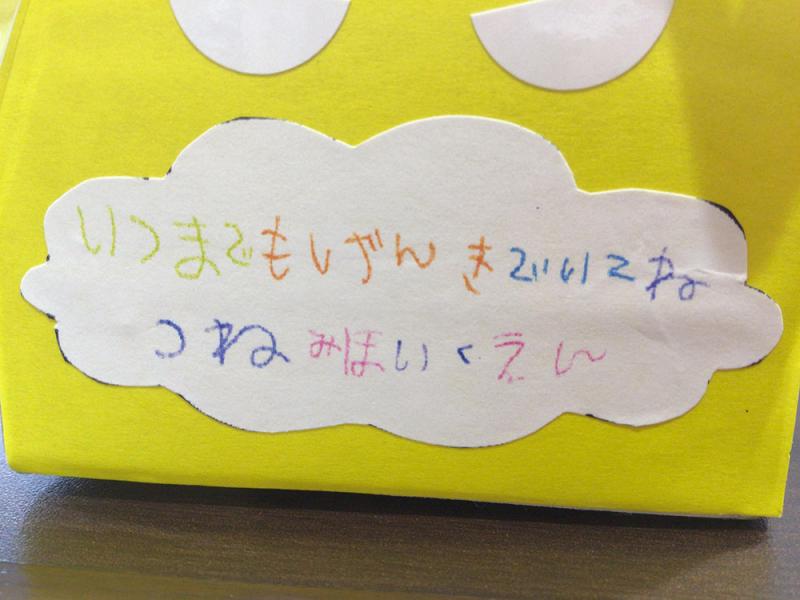 いつまでもげんきでいてね
つねみほいくえん